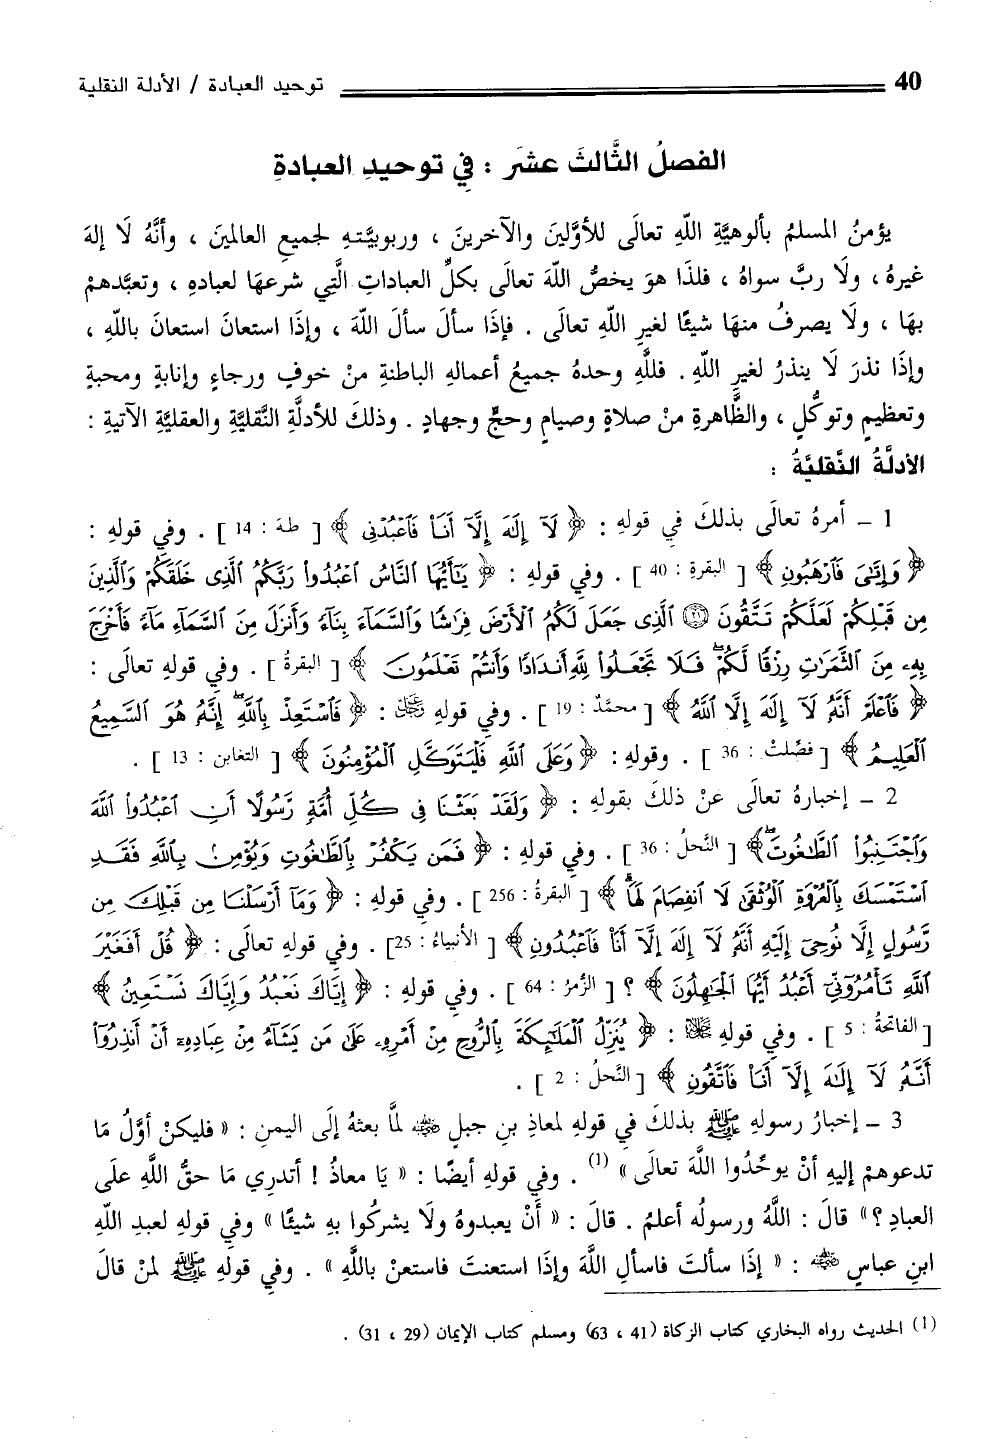 40 توحيد العبادة / الأدلة النقلية
الفصلُ الثَّالثَ عشَر : في توحيدِ العبادةِ
يؤمنُ المسلمُ بألوهيَّةِ اللهِ تعالَى للأوَّلينَ والآخرينَ ، وربوبيَّتهِ لجميعِ العالمينَ ، وأنَّهُ لَا إلهَ
غيرهُ ، ولَا ربَّ سواهُ ، فلذَا هوَ يخصُّ اللهَ تعالَى بكلِّ العباداتِ الَّتِي شرعهَا لعبادهِ ، وتعبَّدهمْ
بهَا ، ولَا يصرفُ منهَا شيئًا لغيرِ اللهِ تعالَى . فإذَا سألَ سألَ اللهَ ، وإذَا استعانَ استعانَ باللهِ ،
وإذَا نذرَ لَا ينذرُ لغيرِ اللهِ . فللَّهِ وحدهُ جميعُ أعمالهِ الباطنةِ منْ خوفٍ ورجاءٍ وإنابةٍ ومحبةٍ
وتعظيمٍ وتوكُّلٍ ، والظَّاهرةِ منْ صلاةٍ وصيامٍ وحجٍّ وجهادٍ . وذلكَ للأدلَّةِ النَّقليَّةِ والعقليَّةِ الآتيةِ :
الأدلَّةُ النَّقليَّةُ :
1 – أمرهُ تعالَى بذلكَ فِي قولهِ : ﴿ لَآ إِلَٰهَ إِلَّآ أَنَا۠ فَٱعْبُدْنِى ﴾ [ طهَ : 14 ] . وفي قولهِ :
﴿ وَإِيَّٰىَ فَٱرْهَبُونِ ﴾ [ البقرةِ : 40 ] . وفي قولهِ : ﴿ يَٰٓأَيُّهَا ٱلنَّاسُ ٱعْبُدُوا۟ رَبَّكُمُ ٱلَّذِى خَلَقَكُمْ وَٱلَّذِينَ
مِن قَبْلِكُمْ لَعَلَّكُمْ تَتَّقُونَ ﴿٢١﴾ ٱلَّذِى جَعَلَ لَكُمُ ٱلْأَرْضَ فِرَٰشًا وَٱلسَّمَآءَ بِنَآءً وَأَنزَلَ مِنَ ٱلسَّمَآءِ مَآءً فَأَخْرَجَ
بِهِۦ مِنَ ٱلثَّمَرَٰتِ رِزْقًا لَّكُمْ ۖ فَلَا تَجْعَلُوا۟ لِلَّهِ أَندَادًا وَأَنتُمْ تَعْلَمُونَ ﴾ [ البقرةُ ] . وفي قولهِ تعالى :
﴿ فَٱعْلَمْ أَنَّهُۥ لَآ إِلَٰهَ إِلَّا ٱللَّهُ ﴾ [ محمَّدٌ : 19 ] . وفي قولهِ : ﴿ فَٱسْتَعِذْ بِٱللَّهِ ۖ إِنَّهُۥ هُوَ ٱلسَّمِيعُ
ٱلْعَلِيمُ ﴾ [ فصِّلتْ : 36 ] . وقولهِ : ﴿ وَعَلَى ٱللَّهِ فَلْيَتَوَكَّلِ ٱلْمُؤْمِنُونَ ﴾ [ التغابن : 13 ] .
2 – إخبارهُ تعالَى عنْ ذلكَ بقولهِ : ﴿ وَلَقَدْ بَعَثْنَا فِى كُلِّ أُمَّةٍ رَّسُولًا أَنِ ٱعْبُدُوا۟ ٱللَّهَ
وَٱجْتَنِبُوا۟ ٱلطَّٰغُوتَ ۖ ﴾ [ النَّحلُ : 36 ] . وفي قولهِ : ﴿ فَمَن يَكْفُرْ بِٱلطَّٰغُوتِ وَيُؤْمِنۢ بِٱللَّهِ فَقَدِ
ٱسْتَمْسَكَ بِٱلْعُرْوَةِ ٱلْوُثْقَىٰ لَا ٱنفِصَامَ لَهَا ۗ ﴾ [ البقرةُ : 256 ] . وفي قولهِ : ﴿ وَمَآ أَرْسَلْنَا مِن قَبْلِكَ مِن
رَّسُولٍ إِلَّا نُوحِىٓ إِلَيْهِ أَنَّهُۥ لَآ إِلَٰهَ إِلَّآ أَنَا۠ فَٱعْبُدُونِ ﴾ [ الأنبياءُ : 25] . وفي قولهِ تعالَى : ﴿ قُلْ أَفَغَيْرَ
ٱللَّهِ تَأْمُرُوٓنِّىٓ أَعْبُدُ أَيُّهَا ٱلْجَٰهِلُونَ ﴾ ؟ [ الزُّمرُ : 64 ] . وفي قولهِ : ﴿ إِيَّاكَ نَعْبُدُ وَإِيَّاكَ نَسْتَعِينُ ﴾
[ الفاتحةُ : 5 ] . وفي قولهِ : ﴿ يُنَزِّلُ ٱلْمَلَٰٓئِكَةَ بِٱلرُّوحِ مِنْ أَمْرِهِۦ عَلَىٰ مَن يَشَآءُ مِنْ عِبَادِهِۦٓ أَنْ أَنذِرُوٓا۟
أَنَّهُۥ لَآ إِلَٰهَ إِلَّآ أَنَا۠ فَٱتَّقُونِ ﴾ [ النَّحلُ : 2 ] .
3 – إخبارُ رسولهِ ﷺ بذلكَ فِي قولهِ لمعاذِ بنِ جبلٍ رضي الله عنه لمَّا بعثهُ إلَى اليمنِ : « فليكنْ أوَّلُ مَا
تدعوهمْ إليهِ أنْ يوحِّدُوا اللَّهَ تعالَى » (1) . وفي قولهِ أيضًا : « يَا معاذُ ! أتدرِي مَا حقُّ اللَّهِ علَى
العبادِ ؟ » قالَ : اللَّهُ ورسولُه أعلمُ . قالَ : « أنْ يعبدوهُ ولَا يشركُوا بهِ شيئًا » وفي قولهِ لعبدِ اللَّهِ
ابنِ عباسٍ رضي الله عنه : « إذَا سألتَ فاسألِ اللَّهَ وإذَا استعنتَ فاستعنْ باللَّهِ » . وفي قولهِ ﷺ لمنْ قالَ
(1) الحديث رواه البخاري كتاب الزكاة (41 ، 63) ومسلم كتاب الإيمان (29 ، 31) .